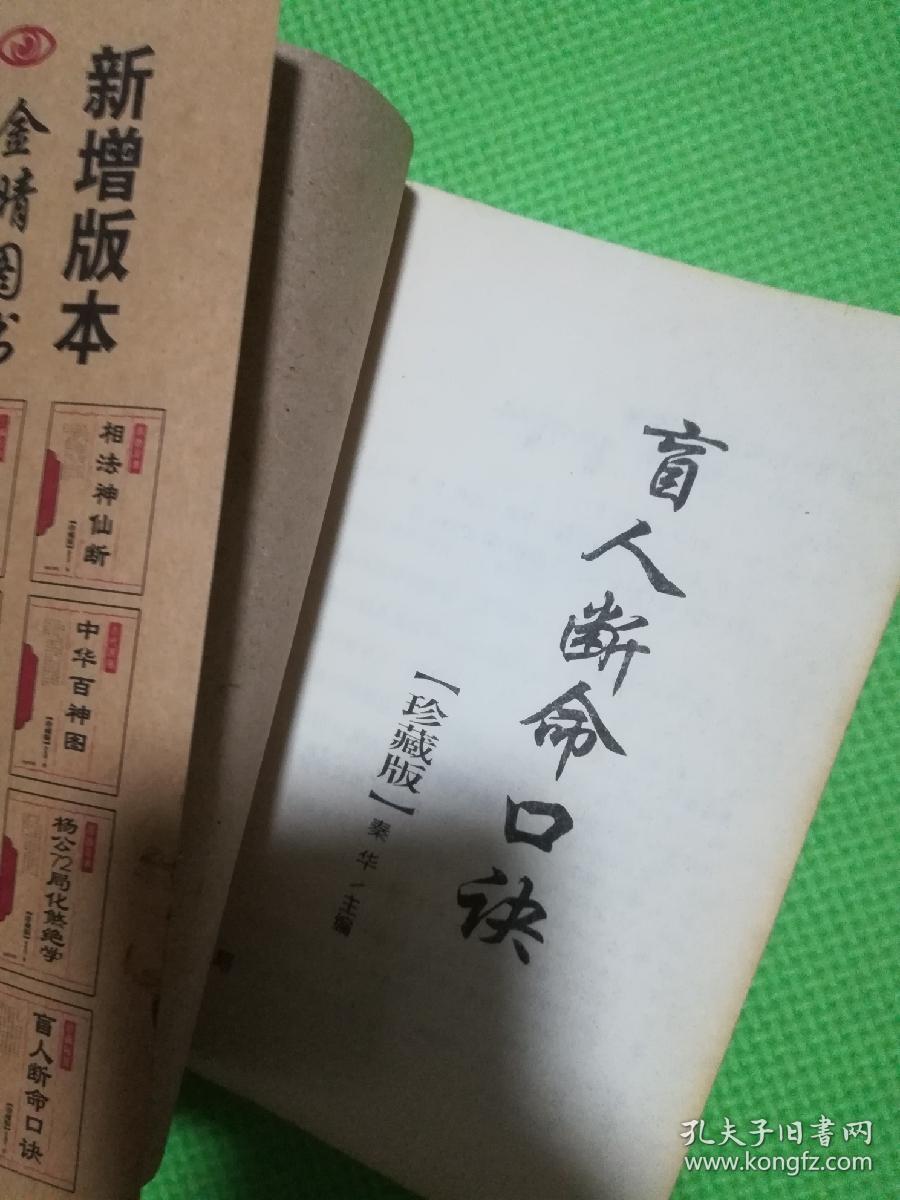 新增版本
金晴图书
相法神仙断
中华百神图
杨公72局化煞绝学
盲人断命口诀
盲人断命口诀
【珍藏版】秦华/主编
孔夫子旧书网
www.kongfz.com